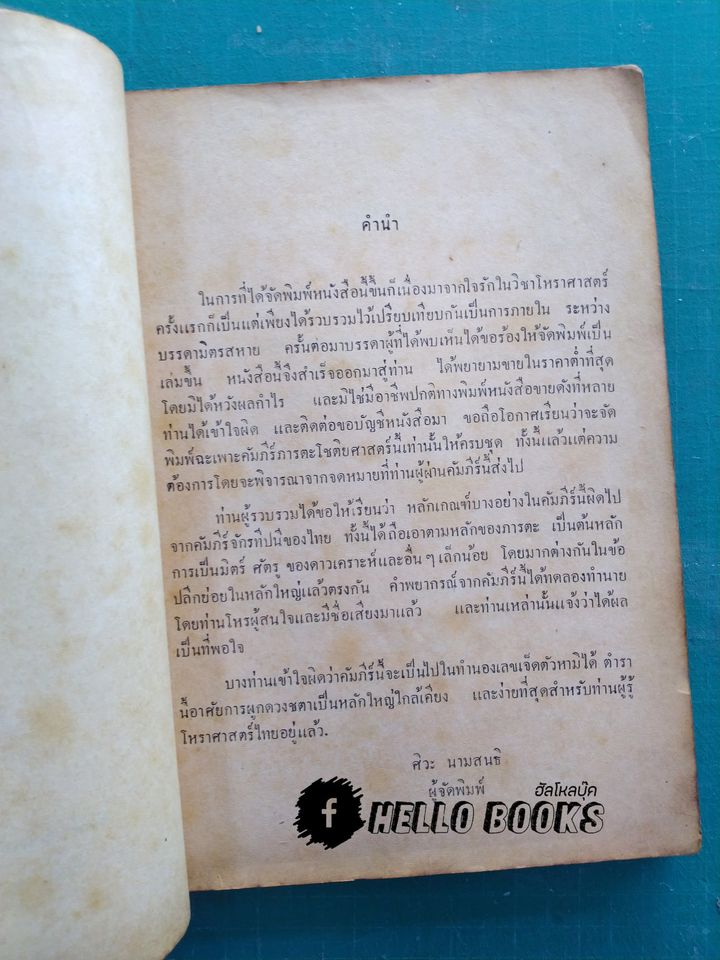 คำนำ
ในการที่ได้จัดพิมพ์หนังสือนี้ขึ้นก็เนื่องมาจากใจรักในวิชาโหราศาสตร์
ครั้งแรกก็เป็นแต่เพียงได้รวบรวมไว้เปรียบเทียบกันเป็นการภายใน ระหว่าง
บรรดามิตรสหาย ครั้นต่อมาบรรดาผู้ที่ได้พบเห็นได้ขอร้องให้จัดพิมพ์เป็น
เล่มขึ้น หนังสือนี้จึงสำเร็จออกมาสู่ท่าน ได้พยายามขายในราคาต่ำที่สุด
โดยมิได้หวังผลกำไร และมิใช่มีอาชีพปกติทางพิมพ์หนังสือขายดังที่หลาย
ท่านได้เข้าใจผิด และติดต่อขอบัญชีหนังสือมา ขอถือโอกาศเรียนว่าจะจัด
พิมพ์ฉะเพาะคัมภีร์ภารตะโชติยศาสตร์นี้เท่านั้นให้ครบชุด ทั้งนี้แล้วแต่ความ
ต้องการโดยจะพิจารณาจากจดหมายที่ท่านผู้ผ่านคัมภีร์นี้ส่งไป
ท่านผู้รวบรวมได้ขอให้เรียนว่า หลักเกณฑ์บางอย่างในคัมภีร์นี้ผิดไป
จากคัมภีร์จักรทีปนีของไทย ทั้งนี้ได้ถือเอาตามหลักของภารตะ เป็นต้นหลัก
การเป็นมิตร์ ศัตรู ของดาวเคราะห์และอื่นๆเล็กน้อย โดยมากต่างกันในข้อ
ปลีกย่อยในหลักใหญ่แล้วตรงกัน คำพยากรณ์จากคัมภีร์นี้ได้ทดลองทำนาย
โดยท่านโหรผู้สนใจและมีชื่อเสียงมาแล้ว และท่านเหล่านั้นแจ้งว่าได้ผล
เป็นที่พอใจ
บางท่านเข้าใจผิดว่าคัมภีร์นี้จะเป็นไปในทำนองเลขเจ็ดตัวหามิได้ ตำรา
นี้อาศัยการผูกดวงชตาเป็นหลักใหญ่ใกล้เคียง และง่ายที่สุดสำหรับท่านผู้รู้
โหราศาสตร์ไทยอยู่แล้ว.
ศิวะ นามสนธิ
ผู้จัดพิมพ์
ฮัลโหลบุ๊ค
f HELLO BOOKS